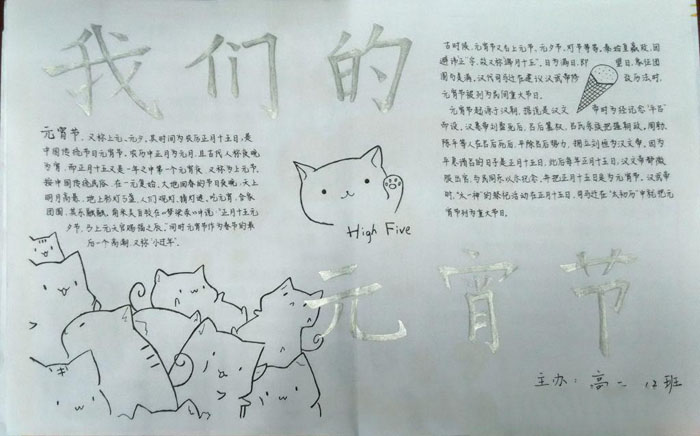 我们的
元宵节,
又称上元、元夕,其时间为农历正月十五日,是
中国传统节日元宵节。农历中正月为元月,且古代人称夜晚
为宵,而正月十五又是一年之中第一个元宵夜,又称为上元节,
按中国传统民俗,在一元复始,大地回春的节日夜晚,天上
明月高悬,地上彩灯万盏,人们观灯、猜灯谜、吃元宵,合家
团圆,其乐融融。南宋吴自牧在《梦梁录》中说:“正月十五元
夕节,乃上元天官赐福之辰。”同时元宵节作为春节的最
后一个高潮,又称“小过年”。
High Five
古时候,元宵节又名上元节、元夕节、灯节等等,秦始皇嬴政,因
避讳正字,故又称端月十五,日为满日,即望日,象征团
圆与美满,汉代司马迁在建议汉武帝修改历法时,
元宵节被列为民间重大节日。
元宵节起源于汉朝,据说是汉文帝时为纪念“平吕”
而设,汉惠帝刘盈死后,吕后篡权,吕氏宗族把握朝政。周勃、
陈平等人在吕后死后,平除吕后势力,拥立刘恒为汉文帝,因为
平息诸吕的日子是正月十五日,此后每年正月十五日,汉文帝都微
服出宫,与民同乐以示纪念,并把正月十五日定为元宵节。汉武帝
时,“太一神”的祭祀活动在正月十五日,司马迁在“太初历”中就把元
宵节列为重大节日。
元宵节
主办:高二 12班